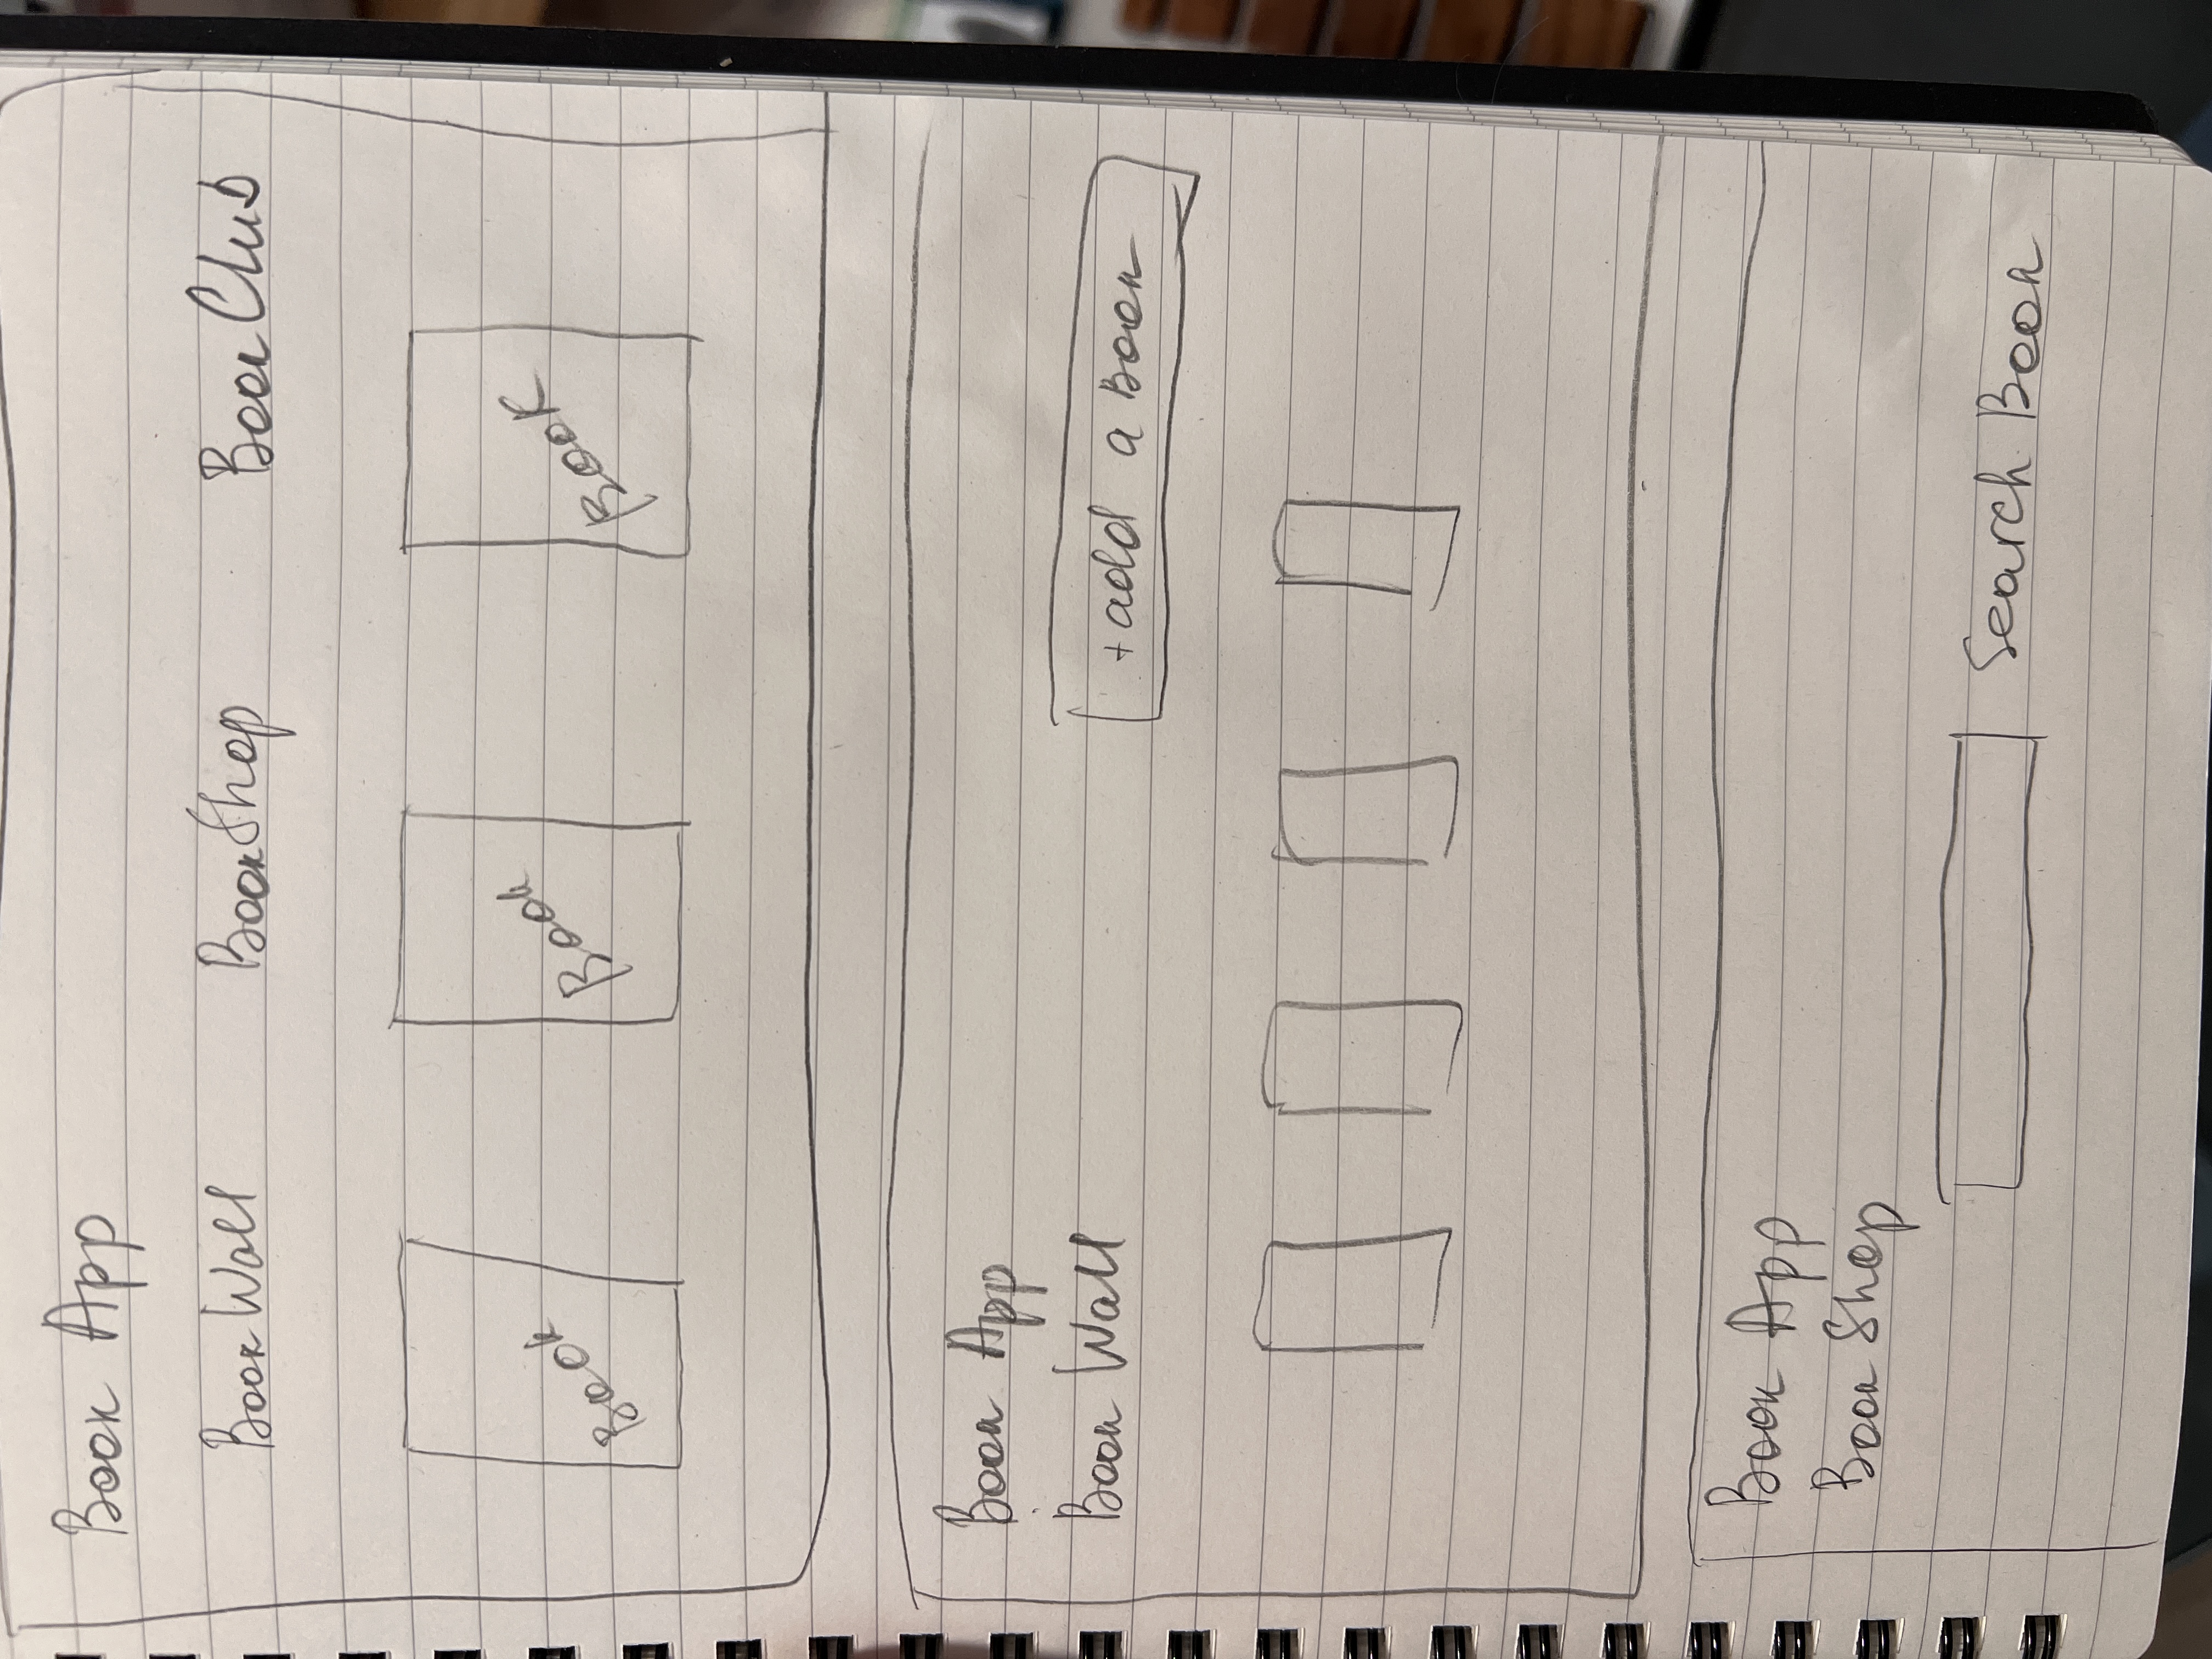 Book App
BookWall BookShop BookClub
Book Book Book
Book App
Book Wall
+ add a Book
Book App
Book Shop
Search Book